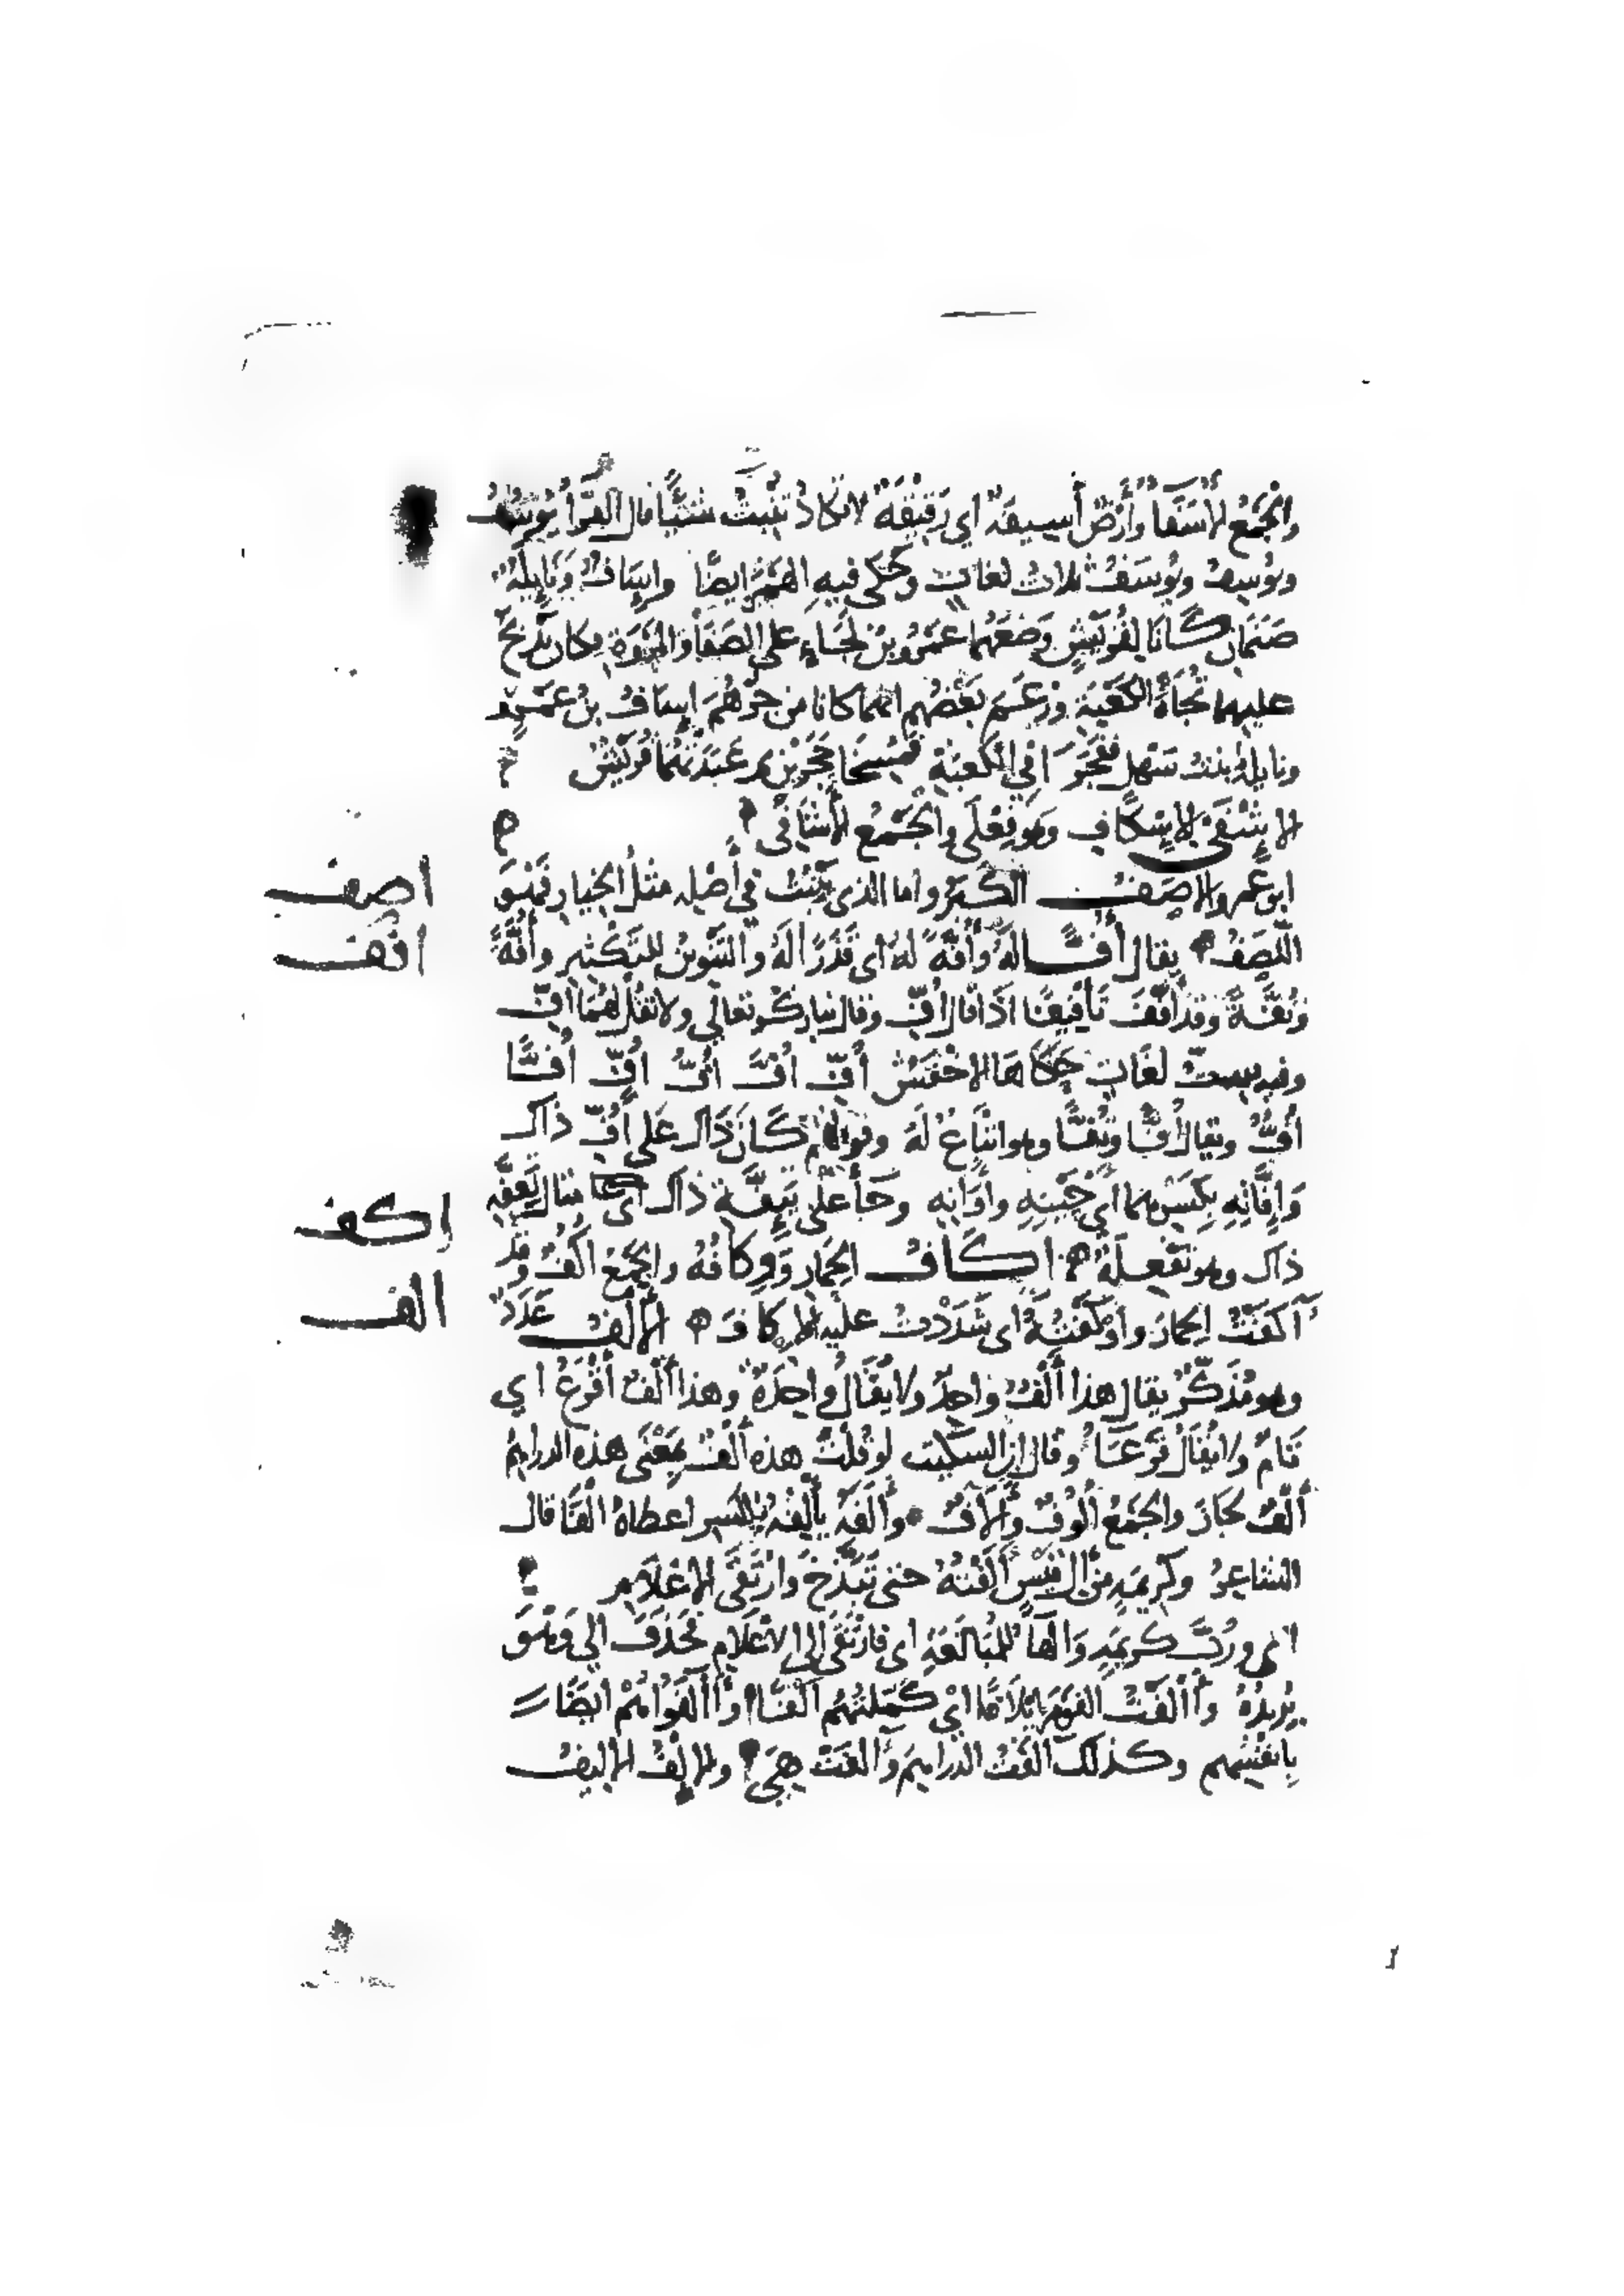 والجَمْعُ الأُسَفَاءُ وأَرْضٌ أَسِيفَةٌ اي رَقِيقَةٌ لا تكادُ تُنْبِتُ شَيْئًا قال الفَرَّاءُ يُوسُفُ
ويُوسِفُ ويُوسَفُ ثلاثُ لغاتٍ وحُكِيَ فيهِ الهَمْزُ ايضًا وإسَافٌ ونَايِلَةُ
صَنَمَانِ كَانَا لِقُرَيْشٍ وَضَعَهُمَا عَمْرُو بْنُ لُحَيٍّ على الصَفَا والمَرْوَةِ وكان يُذْبَحُ
عليهما تُجَاهَ الكَعْبَةِ وزعَمَ بَعْضُهُم انهما كانا من جُرْهُمَ اِسَافُ بنُ عَمْرٍو
ونايلةُ بنتُ سَهْلٍ فَفَجَرَا في الكَعْبَةِ فَمُسِخَا حَجَرَيْنِ ثم عَبَدَتْهُمَا قُرَيْشٌ
الإشْفَى لِلإسْكَافِ وهو فِعْلَى والجَمْعُ الأَشَافَى
ابو عمرو الأَصَفُ الكَبَرُ واما الذي يَنْبُتُ في أَصْلِه مثلُ الخِيارِ فَهْوَ
اللَّصَفُ يقال أُفًّا لَهُ وأُفَّةً لهُ اي قَذَرًا لَهُ والتَّنْوِينُ للتَنْكِيرِ وأُفَّةً
وتُفَّةً وقد أَفَّفَ تَأْفِيفًا اذَا قال أُفٍّ وقال تبارك وتعالى ولا تَقُلْ لَهُمَا أُفٍّ
وفيه سِتُّ لغَاتٍ حَكَاهَا الاخْفَشُ أُفِّ أُفَّ أُفُّ أُفٍّ أُفًّا
أُفٌّ ويقال أُفًّا وتُفًّا وهو اتْبَاعٌ لَهُ وقولهم كَانَ ذَاك عَلى إفِّ ذاك
وَإفَّانِهِ بِكَسْرِهِما ايْ حِينِهِ وأَوَانِهِ وجَاءَ عَلَى تَئِفَّةِ ذاك
ذاك وهو تَفْعِلَةٌ اِكَافُ الحِمَارِ وَوِكَافُهُ والجَمْعُ أُكُفٌ وقد
آكَفْتُ الحِمارَ وأَوْكَفْتُهُ اي شَدَدْتُ عليه الإكافَ الأَلْفُ عَدَدٌ
وهو مُذَكَّرٌ يقال هذا أَلْفٌ واحِدٌ ولا يُقَالُ واحِدَةٌ وهذا أَلْفٌ أَقْرَعُ اي
تَامٌّ ولا يُقَالُ قَرْعَاءُ وقال ابن السكيت لو قُلْتَ هذه أَلْفٌ بِمَعْنَى هذه الدراهِمُ
أَلْفٌ لجازَ والجَمْعُ أُلُوفٌ وآلاَفٌ وأَلَفَهُ يأْلِفُهُ بالكَسْرِ اعطاهُ أَلْفًا قال
الشاعِرُ وكَرِيمَةٍ مِنْ الِ قَيْسَ أَلَفْتُهُ حتى تَبَذَّخَ وارْتَقَى الاعْلامِ
اي ورُبَّ كريمَةٍ وَالهَاءُ لِلْمُبَالَغَةِ اي فارْتَقَى الى الاعْلامِ فحَذَفَ الى وَهْوَ
يُرِيدُهُ وأَأْلَفْتُ القومَ إيلاَفًا ايْ كَمَّلْتُهُم أَلْفًا وأَأْلَفُوا هُمْ ايضًا
بِانفُسِهِم وكذلك آلَفْتُ الدراهِمَ وآلَفَتْ هِيَ والإلْفُ الأَلِيفُ
اصف
افف
اكف
الف